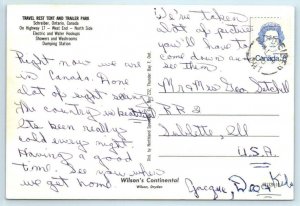 TRAVEL REST TENT AND TRAILER PARK
Schreiber, Ontario, Canada
On Highway 17 - West End - North Side
Electric and Water Hookups
Showers and Washrooms
Dumping Station
Right now we are
in Canada. Done
alot of sight seeing
The country is beautiful
Its been really
cold every night
Having a good
time. See you when
we get home
We've taken
alot of pictures
you'll have to
come down and
see them
Canada 8
Mr & Mrs Geo
RR 2
Ill
U.S.A.
Jacque, Dave & kids
Wilson's Continental
Wilson, Dryden